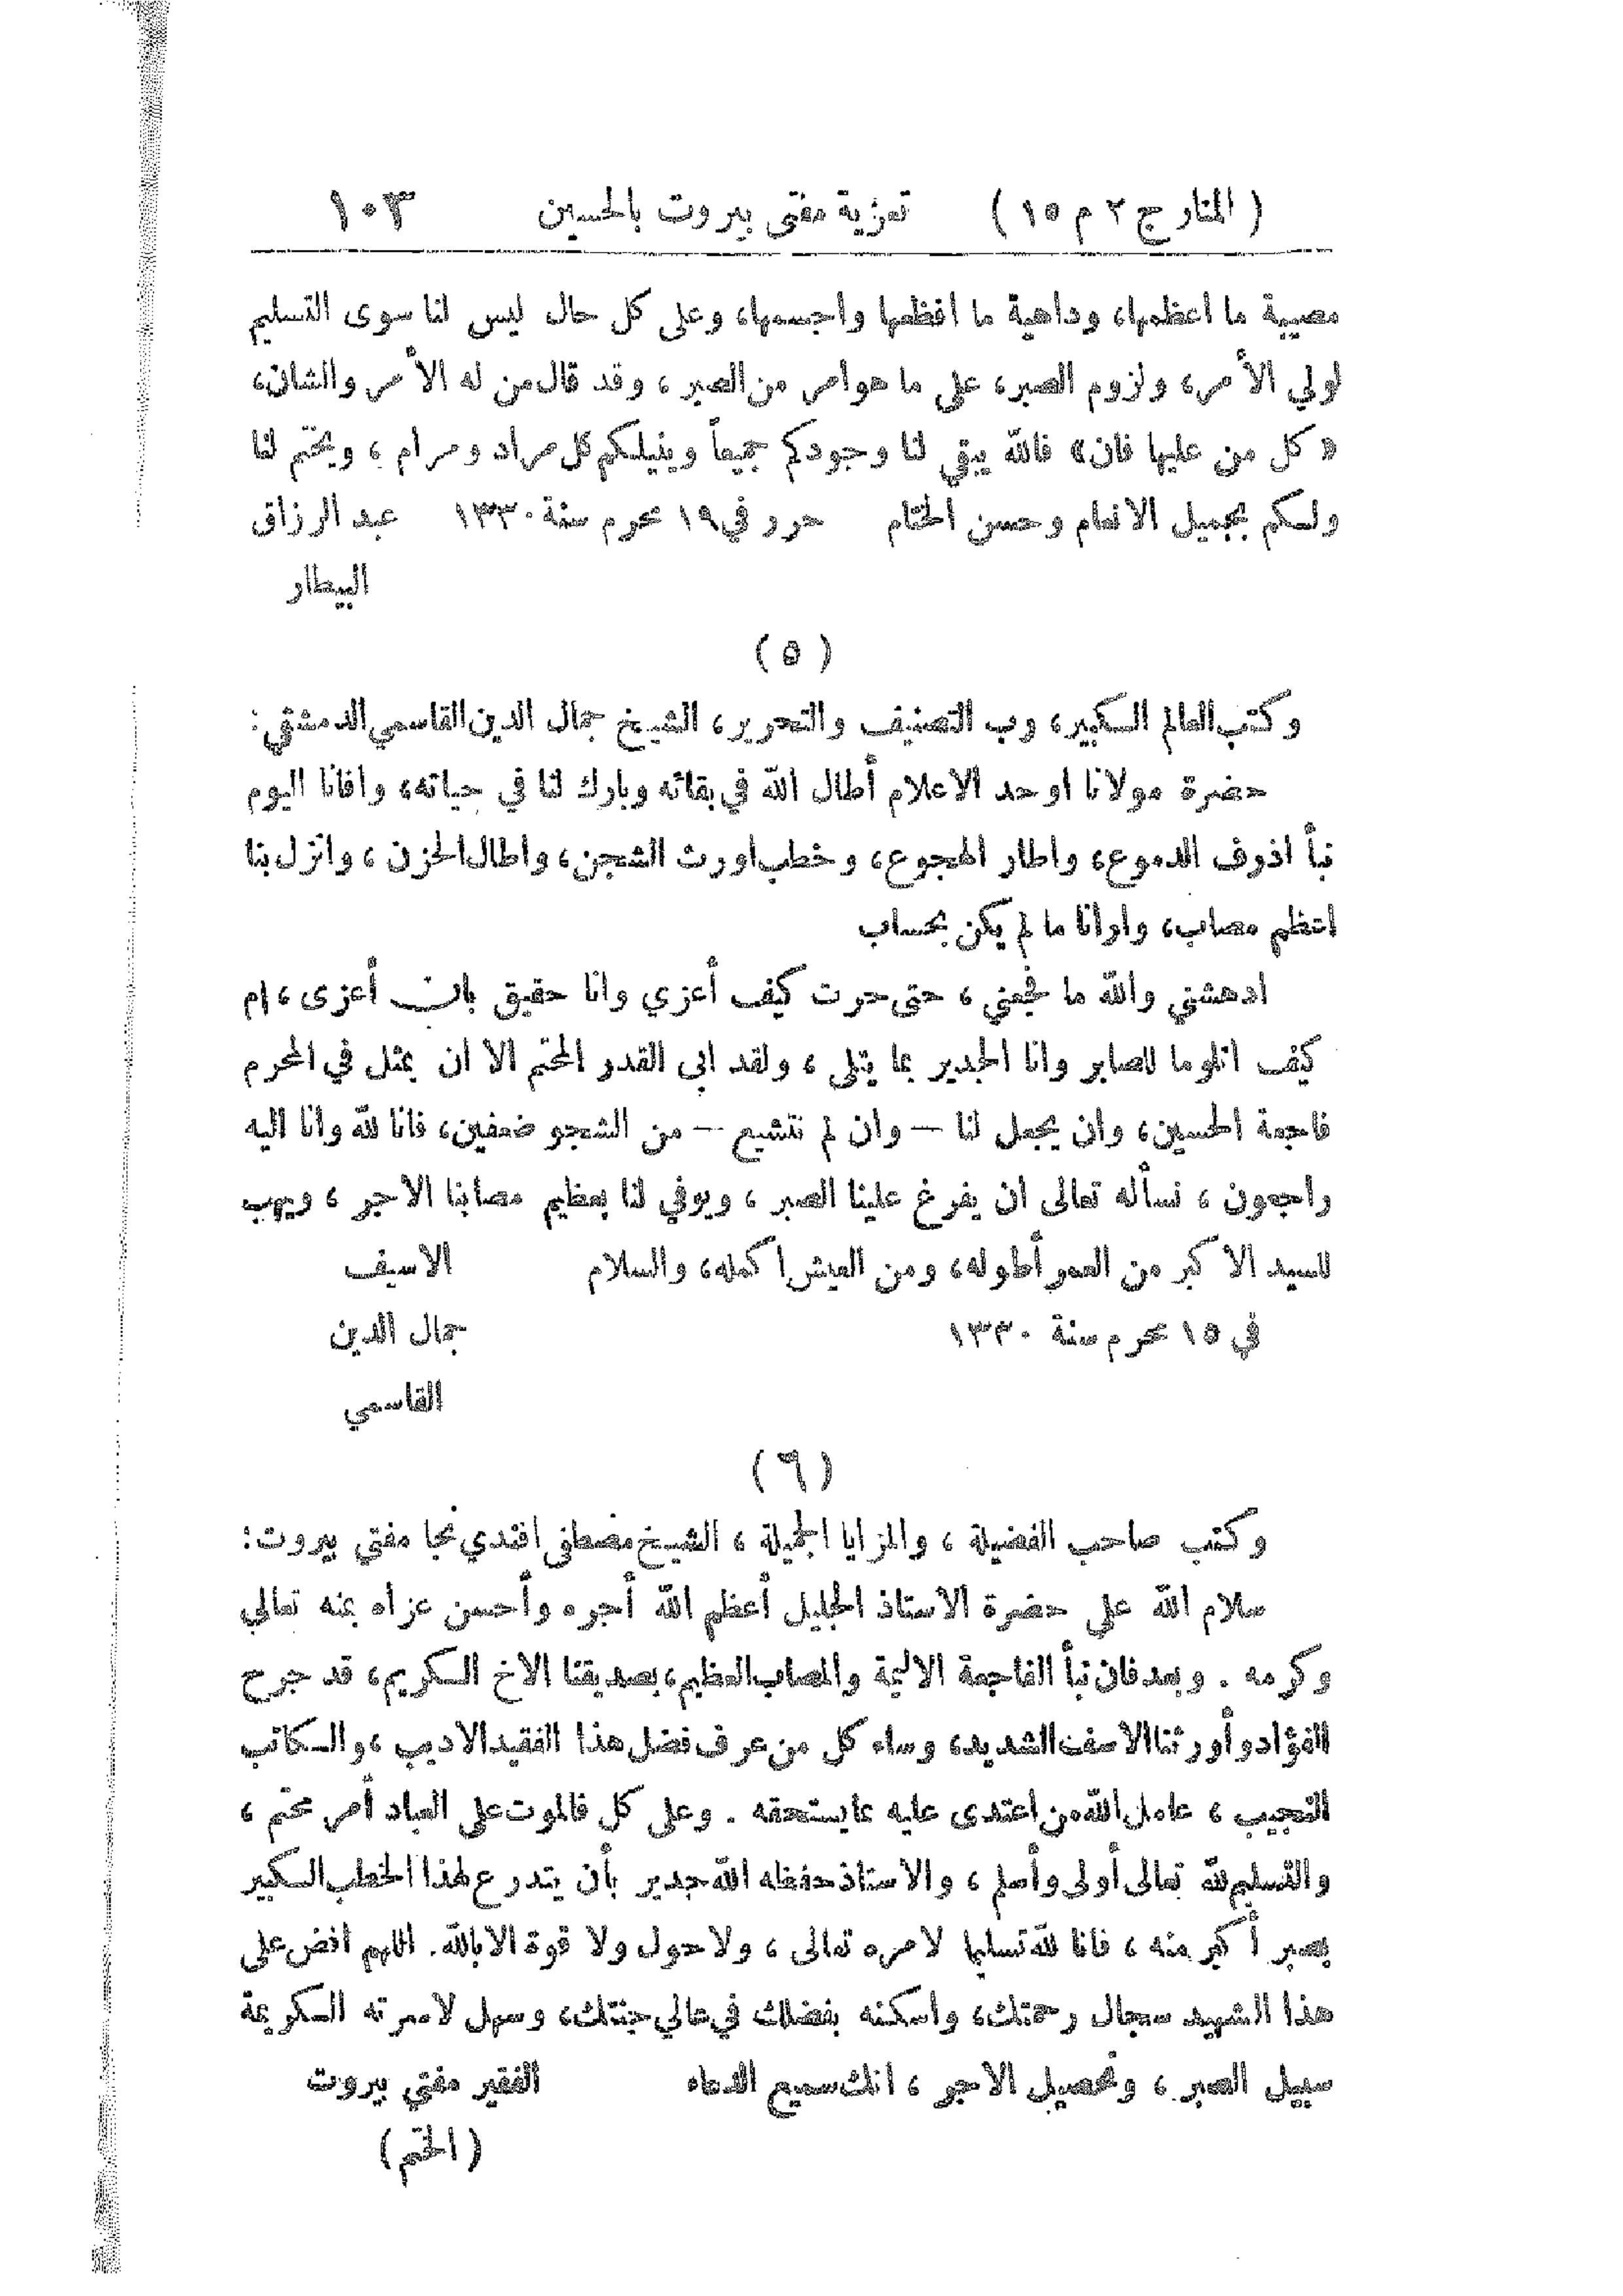 ( المنار ج ٢ م ١٥ ) تعزية مفتي بيروت بالحسين ١٠٣
مصيبة ما اعظمها، وداهية ما افظعها واجسمها، وعلى كل حال ليس لنا سوى التسليم
لولي الأمر، ولزوم الصبر، على ما هو امر من الصبر ، وقد قال من له الأمر والشان،
« كل من عليها فان» فالله يبقي لنا وجودكم جميعاً وينيلكم كل مراد ومرام ، ويختم لنا
ولكم بجميل الانعام وحسن الختام حرر في ١٩ محرم سنة ١٣٣٠ عبد الرزاق
البيطار
( ٥ )
وكتب العالم الكبير، رب التصنيف والتحرير، الشيخ جمال الدين القاسمي الدمشقي :
حضرة مولانا اوحد الاعلام أطال الله في بقائه وبارك لنا في حياته، وافانا اليوم
نبأ اذرف الدموع، واطار الهجوع، وخطب اورث الشجن، واطال الحزن ، وانزل بنا
اعظم مصاب، وارانا ما لم يكن بحساب
ادهشني والله ما فجعني ، حتى حرت كيف أعزي وانا حقيق بان أعزى ، ام
كيف اتلو ما للصابر وانا الجدير بما يتلى ، ولقد ابى القدر المحتم الا ان يمثل في المحرم
فاجعة الحسين، وان يجعل لنا — وان لم نتشيع — من الشجو ضعفين، فانا لله وانا اليه
راجعون ، نسأله تعالى ان يفرغ علينا الصبر ، ويوفي لنا بعظيم مصابنا الاجر ، ويهب
للسيد الاكبر من العمر أطوله، ومن العيش اكمله، والسلام الاسيف
في ١٥ محرم سنة ١٣٣٠ جمال الدين
القاسمي
( ٦ )
وكتب صاحب الفضيلة ، والمزايا الجميلة ، الشيخ مصطفى افندي نجا مفتي بيروت :
سلام الله على حضرة الاستاذ الجليل أعظم الله أجره وأحسن عزاه بمنه تعالى
وكرمه . وبعد فان نبأ الفاجعة الاليمة والمصاب العظيم، بصديقنا الاخ الكريم، قد جرح
الفؤاد وأورثنا الاسف الشديد، وساء كل من عرف فضل هذا الفقيد الاديب ، والكاتب
النجيب ، عامل الله من اعتدى عليه بما يستحقه . وعلى كل فالموت على العباد أمر محتم ،
والتسليم لله تعالى أولى وأسلم ، والاستاذ حفظه الله جدير بأن يتدرع لهذا الخطب الكبير
بصبر أكبر منه ، فانا لله تسليما لامره تعالى ، ولا حول ولا قوة الا بالله. اللهم افض على
هذا الشهيد سجال رحمتك، واسكنه بفضلك في عالي جنتك، وسهل لاسرته الكريمة
سبيل الصبر ، وتحصيل الاجر ، انك سميع الدعاء الفقير مفتي بيروت
( الختم )